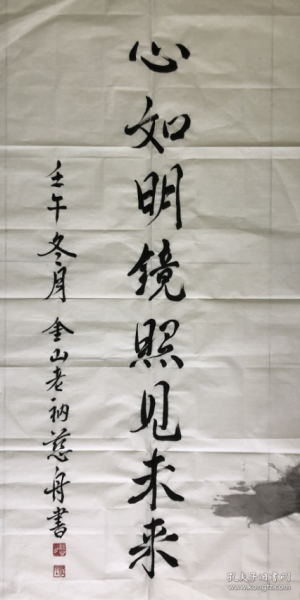 心如明镜照见未来
壬午冬月 金山老衲慈舟書
孔夫子旧书网
book.kongfz.com